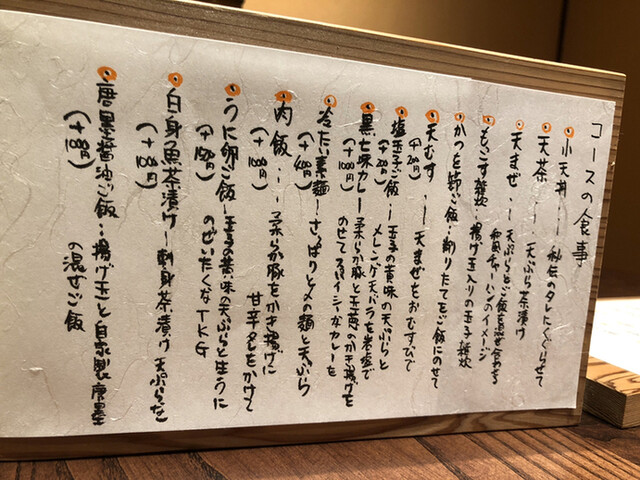 コースの食事
小天丼…秘伝のタレにくぐらせて
天茶…天ぷら茶漬け
天まぜ…天ぷらとご飯を混ぜ合わせる
和風チャーハンのイメージ
もへこす雑炊…揚げ玉入りの玉子雑炊
かつを節ご飯…削りたてをご飯にのせて
天むす…天まぜをおむすびで
塩玉子ご飯…玉子の黄味の天ぷらと
メレンゲ天バラを米塩で
黒七味カレー…柔らか豚と玉葱のかき揚げを
のせてスパイシーなカレーを
冷たい素麺…さっぱりと〆の麺と天ぷら
肉飯…柔らか豚をかき揚げに
甘辛ダレをかけて
うに卵ご飯…玉子の黄味の天ぷらと生うに
のぜいたくなTKG
白身魚茶漬け…刺身茶漬け 天ぷらを
唐墨醤油ご飯…揚げ玉と自家製唐墨
の混ぜご飯